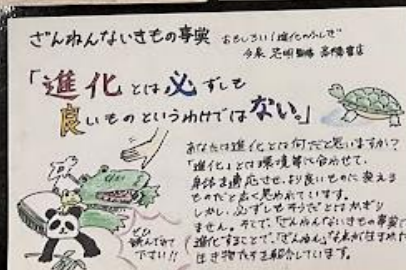 ざんねんないきもの事典 おもしろい!進化のふしぎ
今泉 忠明 監修 高橋書店
「進化とは必ずしも
良いものというわけではない。」
あなたは進化とは何だと思いますか?
「進化」とは環境等に合わせて、
身体を適応させ、より良いものに変える
ものだと広く思われています。
しかし、必ずしもそうだとはかぎり
ません。そこで、「ざんねんないきもの事典」で
進化することで、"ざんねん"な
生き物たちを紹介しています。
ぜひ
読んでみて
下さい!!